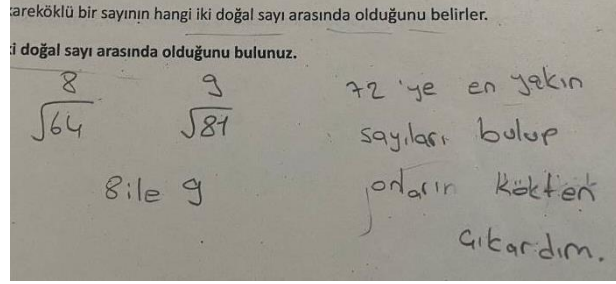 kareköklü bir sayının hangi iki doğal sayı arasında olduğunu belirler.
ki doğal sayı arasında olduğunu bulunuz.
8 9
√64 √81
8 ile 9
72'ye en yakın
sayıları bulup
onların kökten
çıkardım.